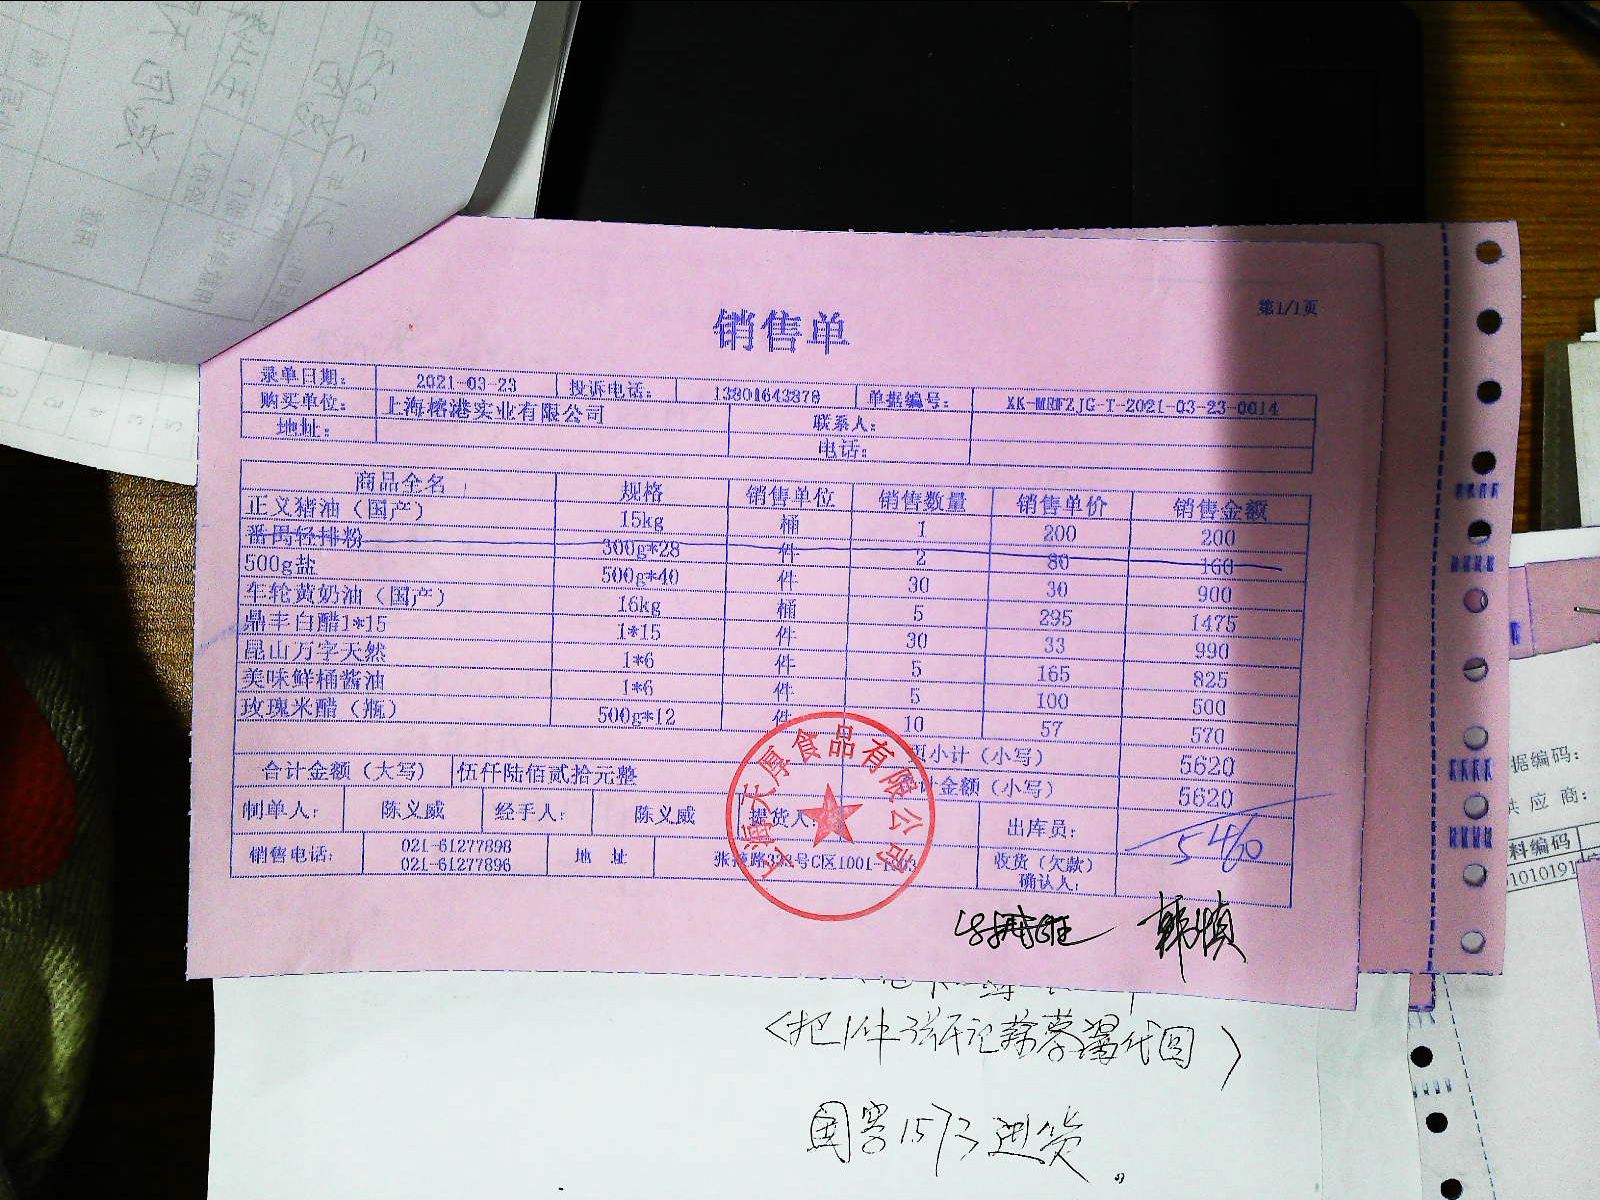 第1/1页
销售单
录单日期： 2021-03-23 投诉电话： 13801643878 单据编号： XK-MRFZJG-T-2021-03-23-0014
购买单位： 上海榕港实业有限公司 联系人：
地址： 电话：
商品全名 规格 销售单位 销售数量 销售单价 销售金额
正义猪油（国产） 15kg 桶 1 200 200
番禺轻排粉 300g*28 件 2 80 160
500g盐 500g*40 件 30 30 900
车轮黄奶油（国产） 16kg 桶 5 295 1475
鼎丰白醋1*15 1*15 件 30 33 990
昆山万字天然 1*6 件 5 165 825
美味鲜桶酱油 1*6 件 5 100 500
玫瑰米醋（瓶） 500g*12 件 10 57 570
小计（小写） 5620
合计金额（大写） 伍仟陆佰贰拾元整 计金额（小写） 5620
制单人： 陈义威 经手人： 陈义威 提货人： 出库员：
5460
销售电话： 021-61277898 021-61277896 地 址 收货（欠款）确认人：
食品有限公司
韩慎
国窖1573退货。
据编码：
供应商：
料编码
01010191